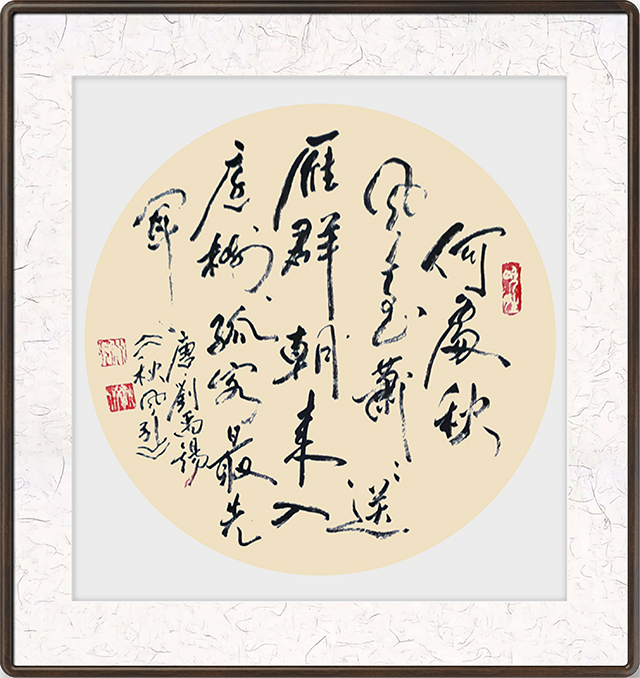 何處秋
風至蕭〻送
雁群朝来入
庭樹孤客最先
聞
唐劉禹錫
《秋風引》